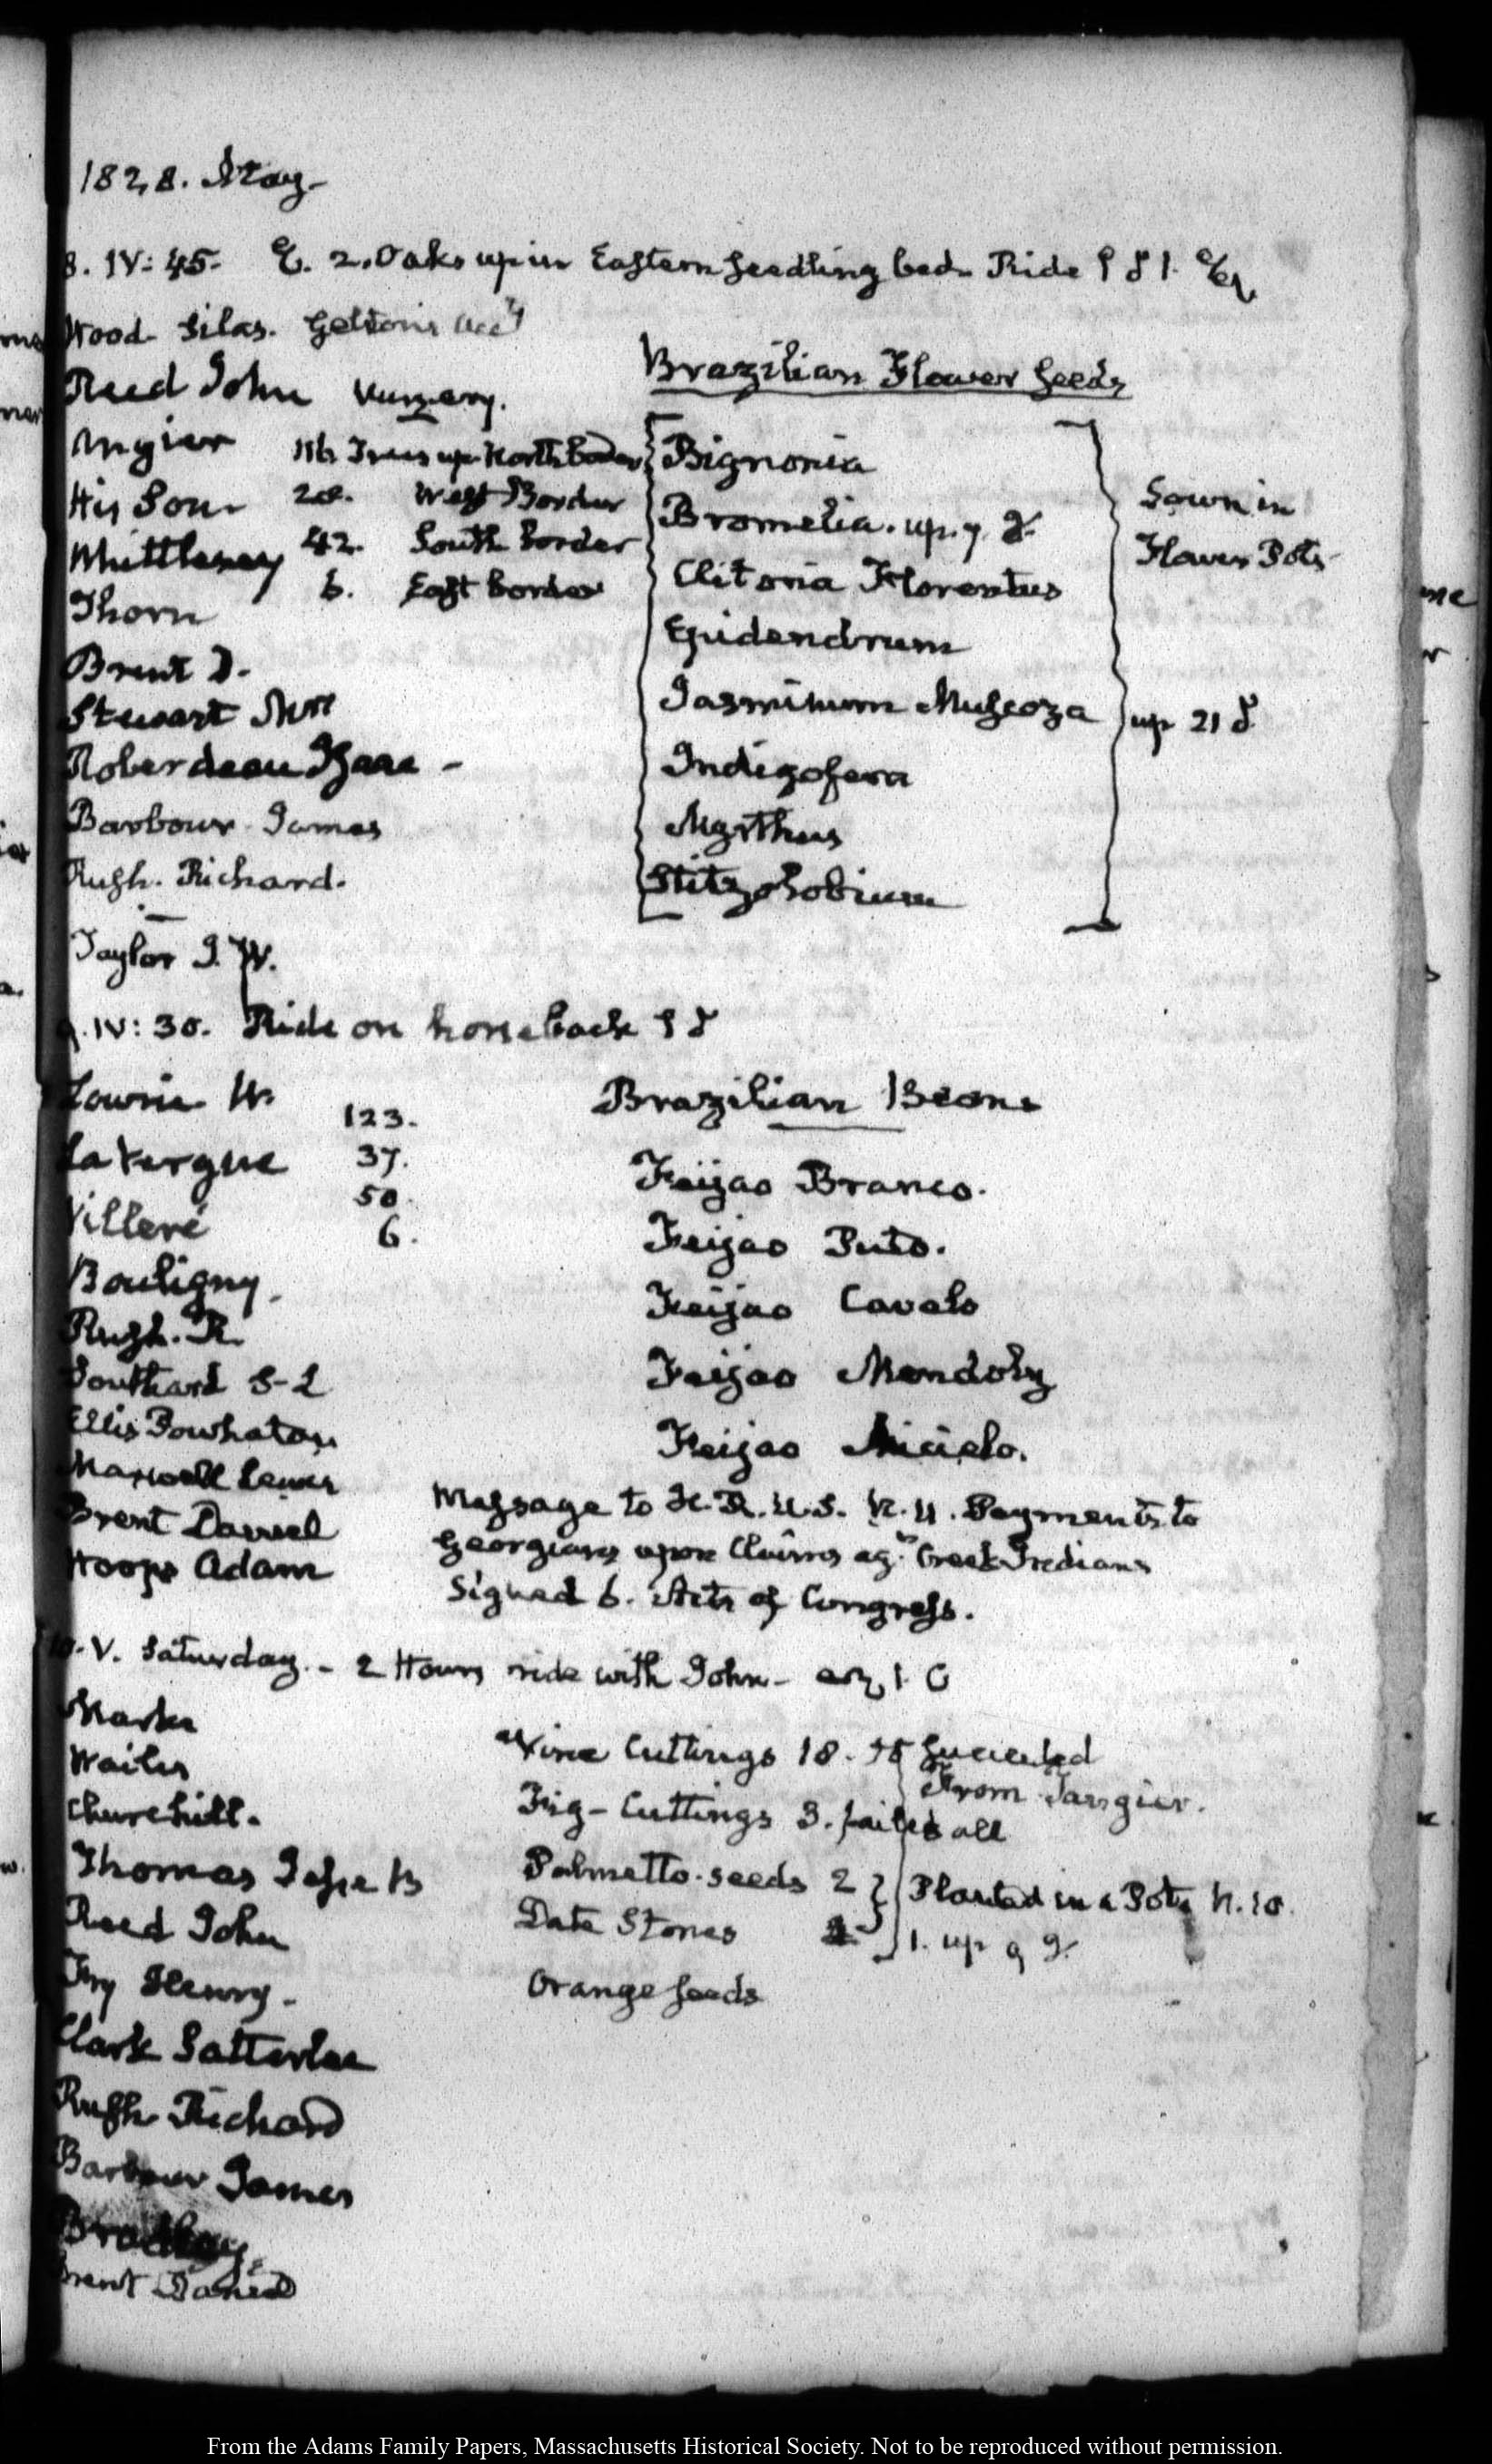 1828. May-
8. IV:45. E. 2. Oaks up in Eastern Seedling bed. Ride
Wood. Silas. Gelston's Acct
Reed John Nursery.
Brazilian Flower Seeds
Angier 116 Trees up North border
Bignonia
His Son 20. West Border
Sown in
Bromelia. up. 7.
Whittlesey 42. South border
Flower Pots
Thorn 6. East border
Clitoria Florentus
Brent D.
Epidendrum
Stewart Mrs
Jasminum Muscoza up 21
Roberdeau Isaac -
Indigofera
Barbour James
Myrthus
Rush. Richard.
Stitzolobium
Taylor J. W.
9. IV:30. Ride on horseback
Lowrie W. 123.
Brazilian Beans
La Vergne 37.
Feijao Branco.
50.
Villeré 6.
Feijao Puto.
Bouligny.
Feijao Cavalo
Rush. R.
Southard S-L
Feijao Mendoby
Ellis Powhatan
Feijao
Maxwell Lewis
Message to H.R.U.S. N. 11. Payments to
Brent Daniel
Georgians upon Claims agt. Creek Indians
Hoops Adam
Signed 6. Acts of Congress.
10. V. Saturday. - 2 Hours ride with John-
Marks
Vine Cuttings 18. Succeeded
Wailes
From Tangier.
Churchill.
Fig-Cuttings 3. failed all
Thomas Jesse B
Palmetto-seeds 2 Planted in a Pots N. 10.
Reed John
Date Stones 1. up 9
Fry Henry.
Orange seeds
Clark Satterlee
Rush Richard
Barbour James
Bradley.
Brent Daniel
From the Adams Family Papers, Massachusetts Historical Society. Not to be reproduced without permission.